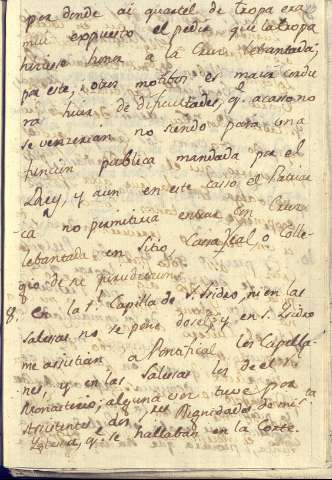 por donde ai quartel de tropa era
mui expuesto el pedir que la tropa
hiciese honor a la Cruz lebantada;
por este, y otros motibos es maior cordu
ra huir de dificultades, q. acaso no
se vencerian no siendo para una
funcion publica mandada por el
Rey, y aun en este casso el Patriar
ca no permitiria entrar con Cruz
lebantada en Sitio, Cassa Real o Colle
gio de su jurisdicion.
8. En la Rl. Capilla de S. Isidro, ni en las
Salesas no se puso dosel; y en S. Isidro
me asistian a Pontifical los Capella-
nes, y en las Salesas los de el
Monasterio; alguna vez tuve por
Asistentes dos Dignidades de mi Sta
Iglesia, q. se hallaban en la Corte.